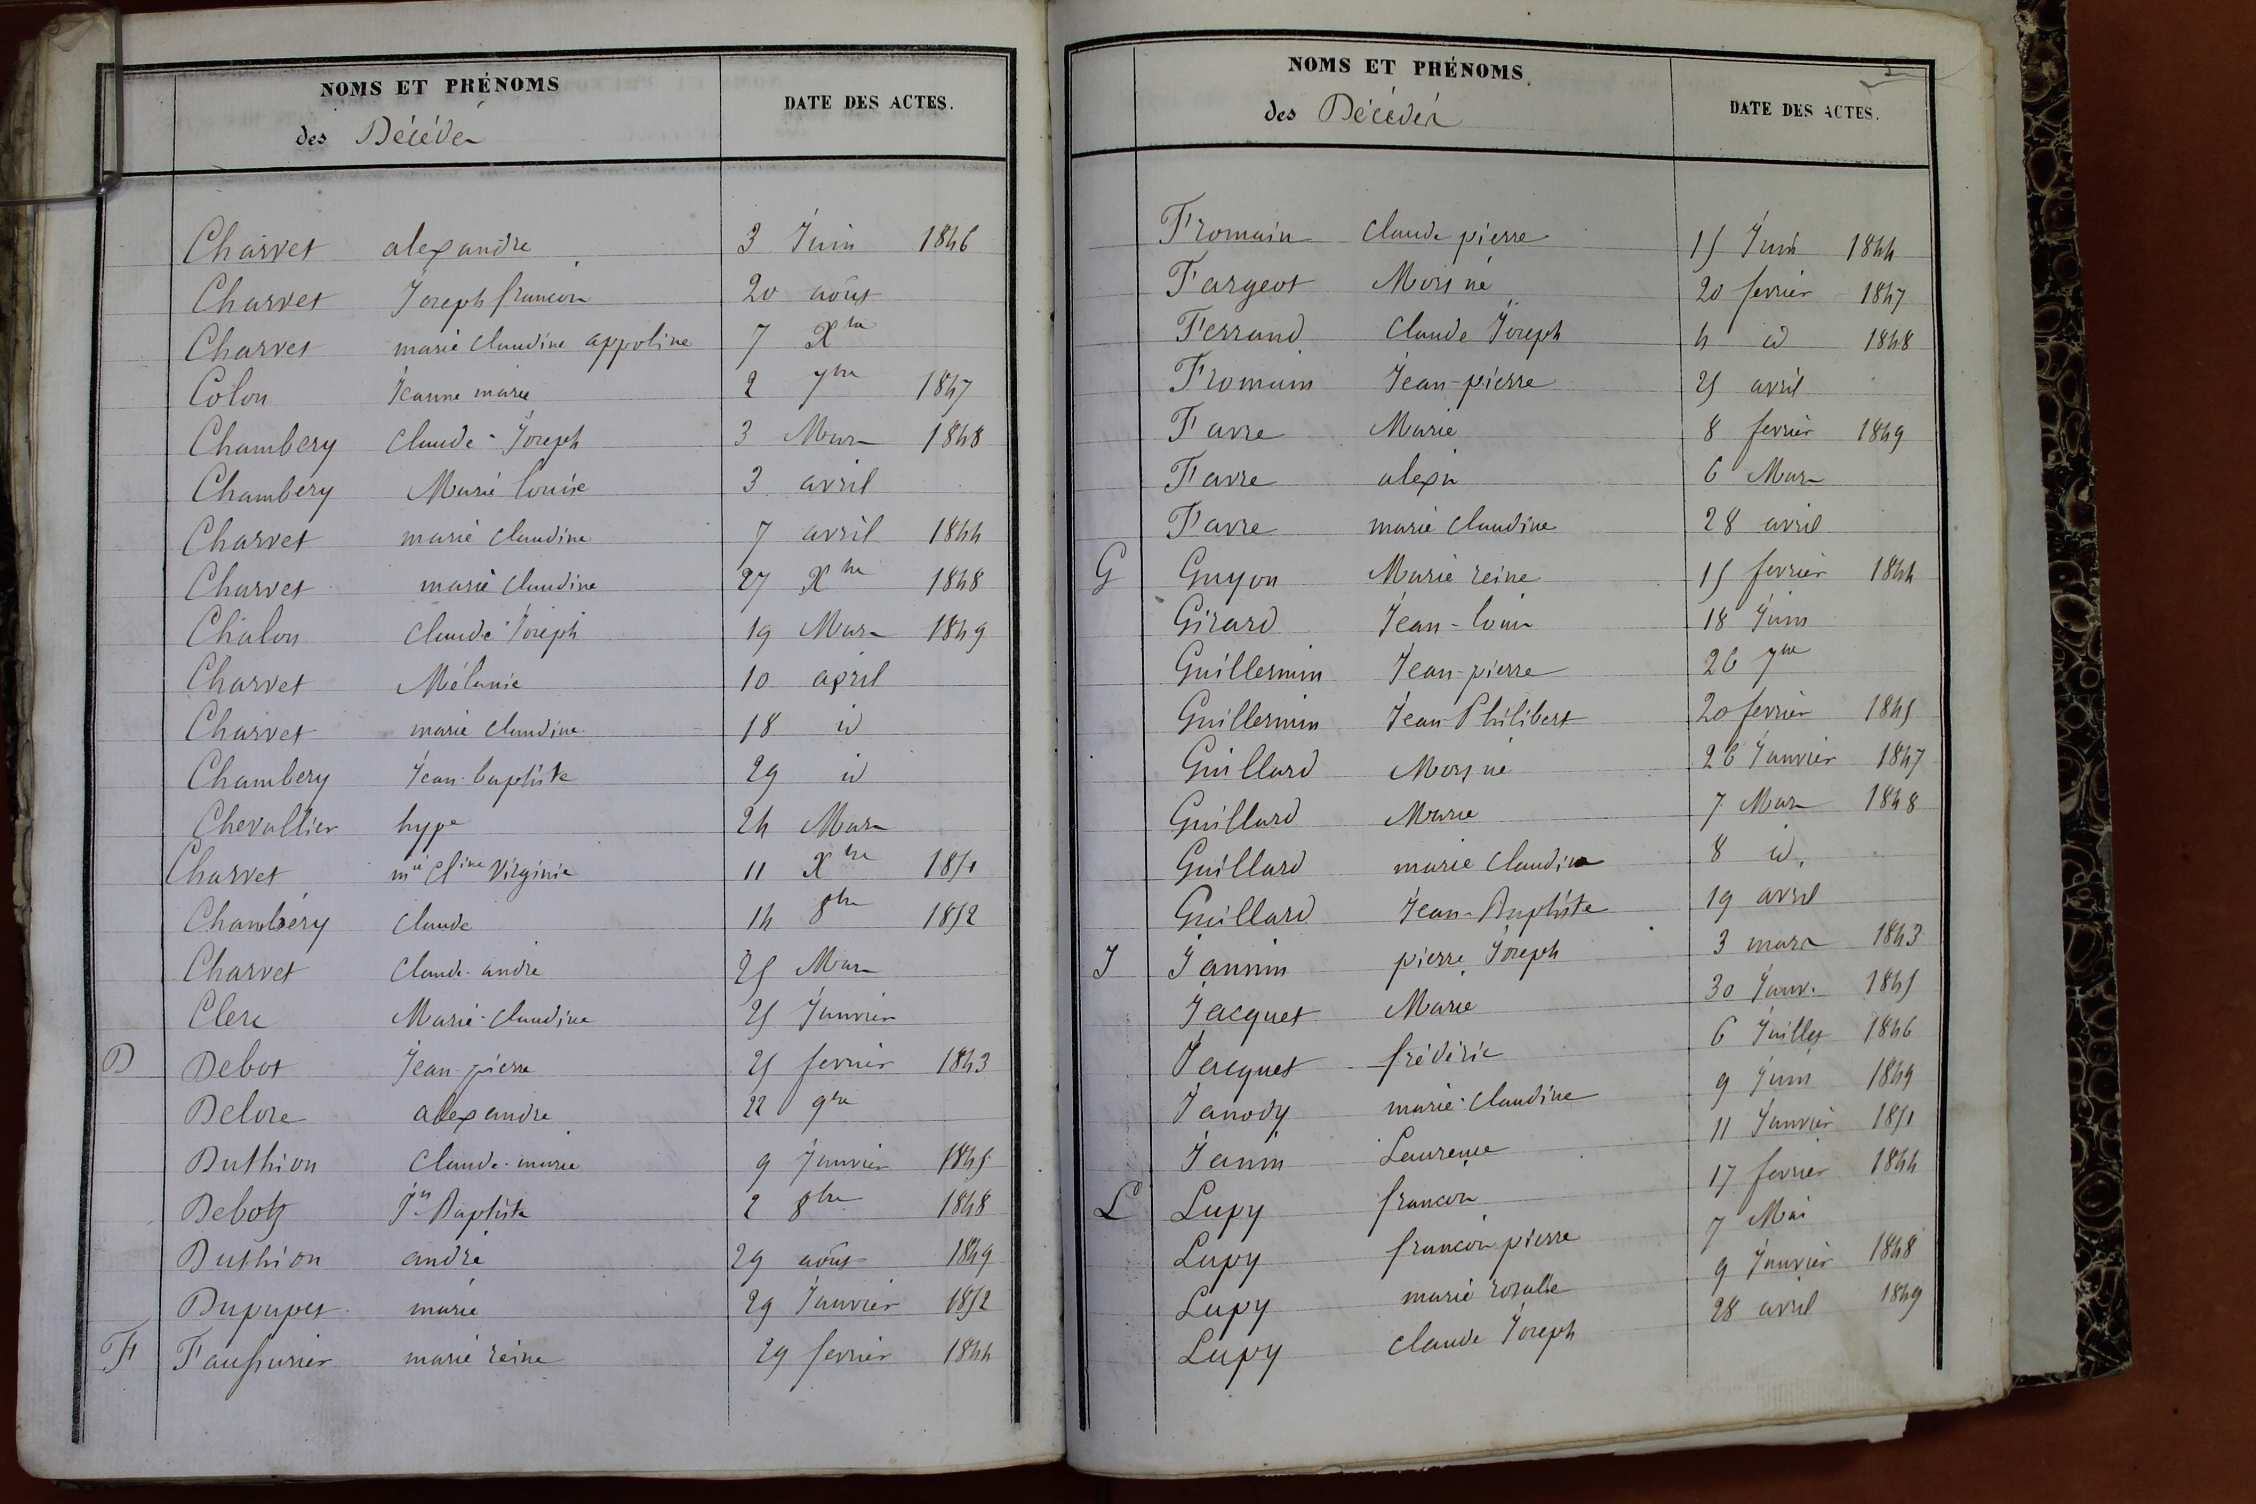 NOMS ET PRÉNOMS
des Décédés
DATE DES ACTES.
Charvet alexandre 3 Juin 1846
Charvet Joseph francois 20 août
Charvet marie Claudine appoline 7 Xbre
Colon Jeanne marie 2 7bre 1847
Chambery Claude-Joseph 3 Mars 1848
Chambery Marie louise 3 avril
Charvet marie Claudine 7 avril 1844
Charvet marie Claudine 27 Xbre 1848
Chalon Claude Joseph 19 Mars 1849
Charvet Mélanie 10 april
Charvet marie Claudine 18 id
Chambery Jean-baptiste 29 id
Chevallier hypte 24 Mars
Charvet mie Cline Virginie 11 Xbre 1851
Chambery Claude 14 8bre 1852
Charvet Claude-andré 25 Mars
Clerc Marie-Claudine 25 Janvier
D Debot Jean-pierre 25 fevrier 1843
Delore alexandre 22 9bre
Duthion Claude-marie 9 Janvier 1845
Debotz Jn Baptiste 2 8bre 1848
Duthion andré 29 août 1849
Dupupet marie 29 Janvier 1852
F Faussurier marie reine 29 fevrier 1844
NOMS ET PRÉNOMS
des Décédés
DATE DES ACTES.
Fromain Claude pierre 15 Juin 1844
Fargeot Mort né 20 fevrier 1847
Ferrand Claude Joseph 4 id 1848
Fromain Jean-pierre 25 avril
Favre Marie 8 fevrier 1849
Favre alexis 6 Mars
Favre marie Claudine 28 avril
G Guyon Marie reine 15 fevrier 1844
Girard Jean-louis 18 Juin
Guillermin Jean-pierre 26 7bre
Guillermin Jean-Philibert 20 fevrier 1845
Guillard Mort né 26 Janvier 1847
Guillard Marie 7 Mars 1848
Guillard marie Claudine 8 id.
Guillard Jean-Baptiste 19 avril
J Jannin pierre Joseph 3 mars 1843
Jacquet Marie 30 Janv. 1845
Jacquet frédéric 6 Juillet 1846
Janody marie-Claudine 9 Juin 1849
Janin Laurence 11 Janvier 1851
L Lupy francois 17 fevrier 1844
Lupy francois pierre 7 Mai
Lupy marie rosalie 9 Janvier 1848
Lupy Claude Joseph 28 avril 1849